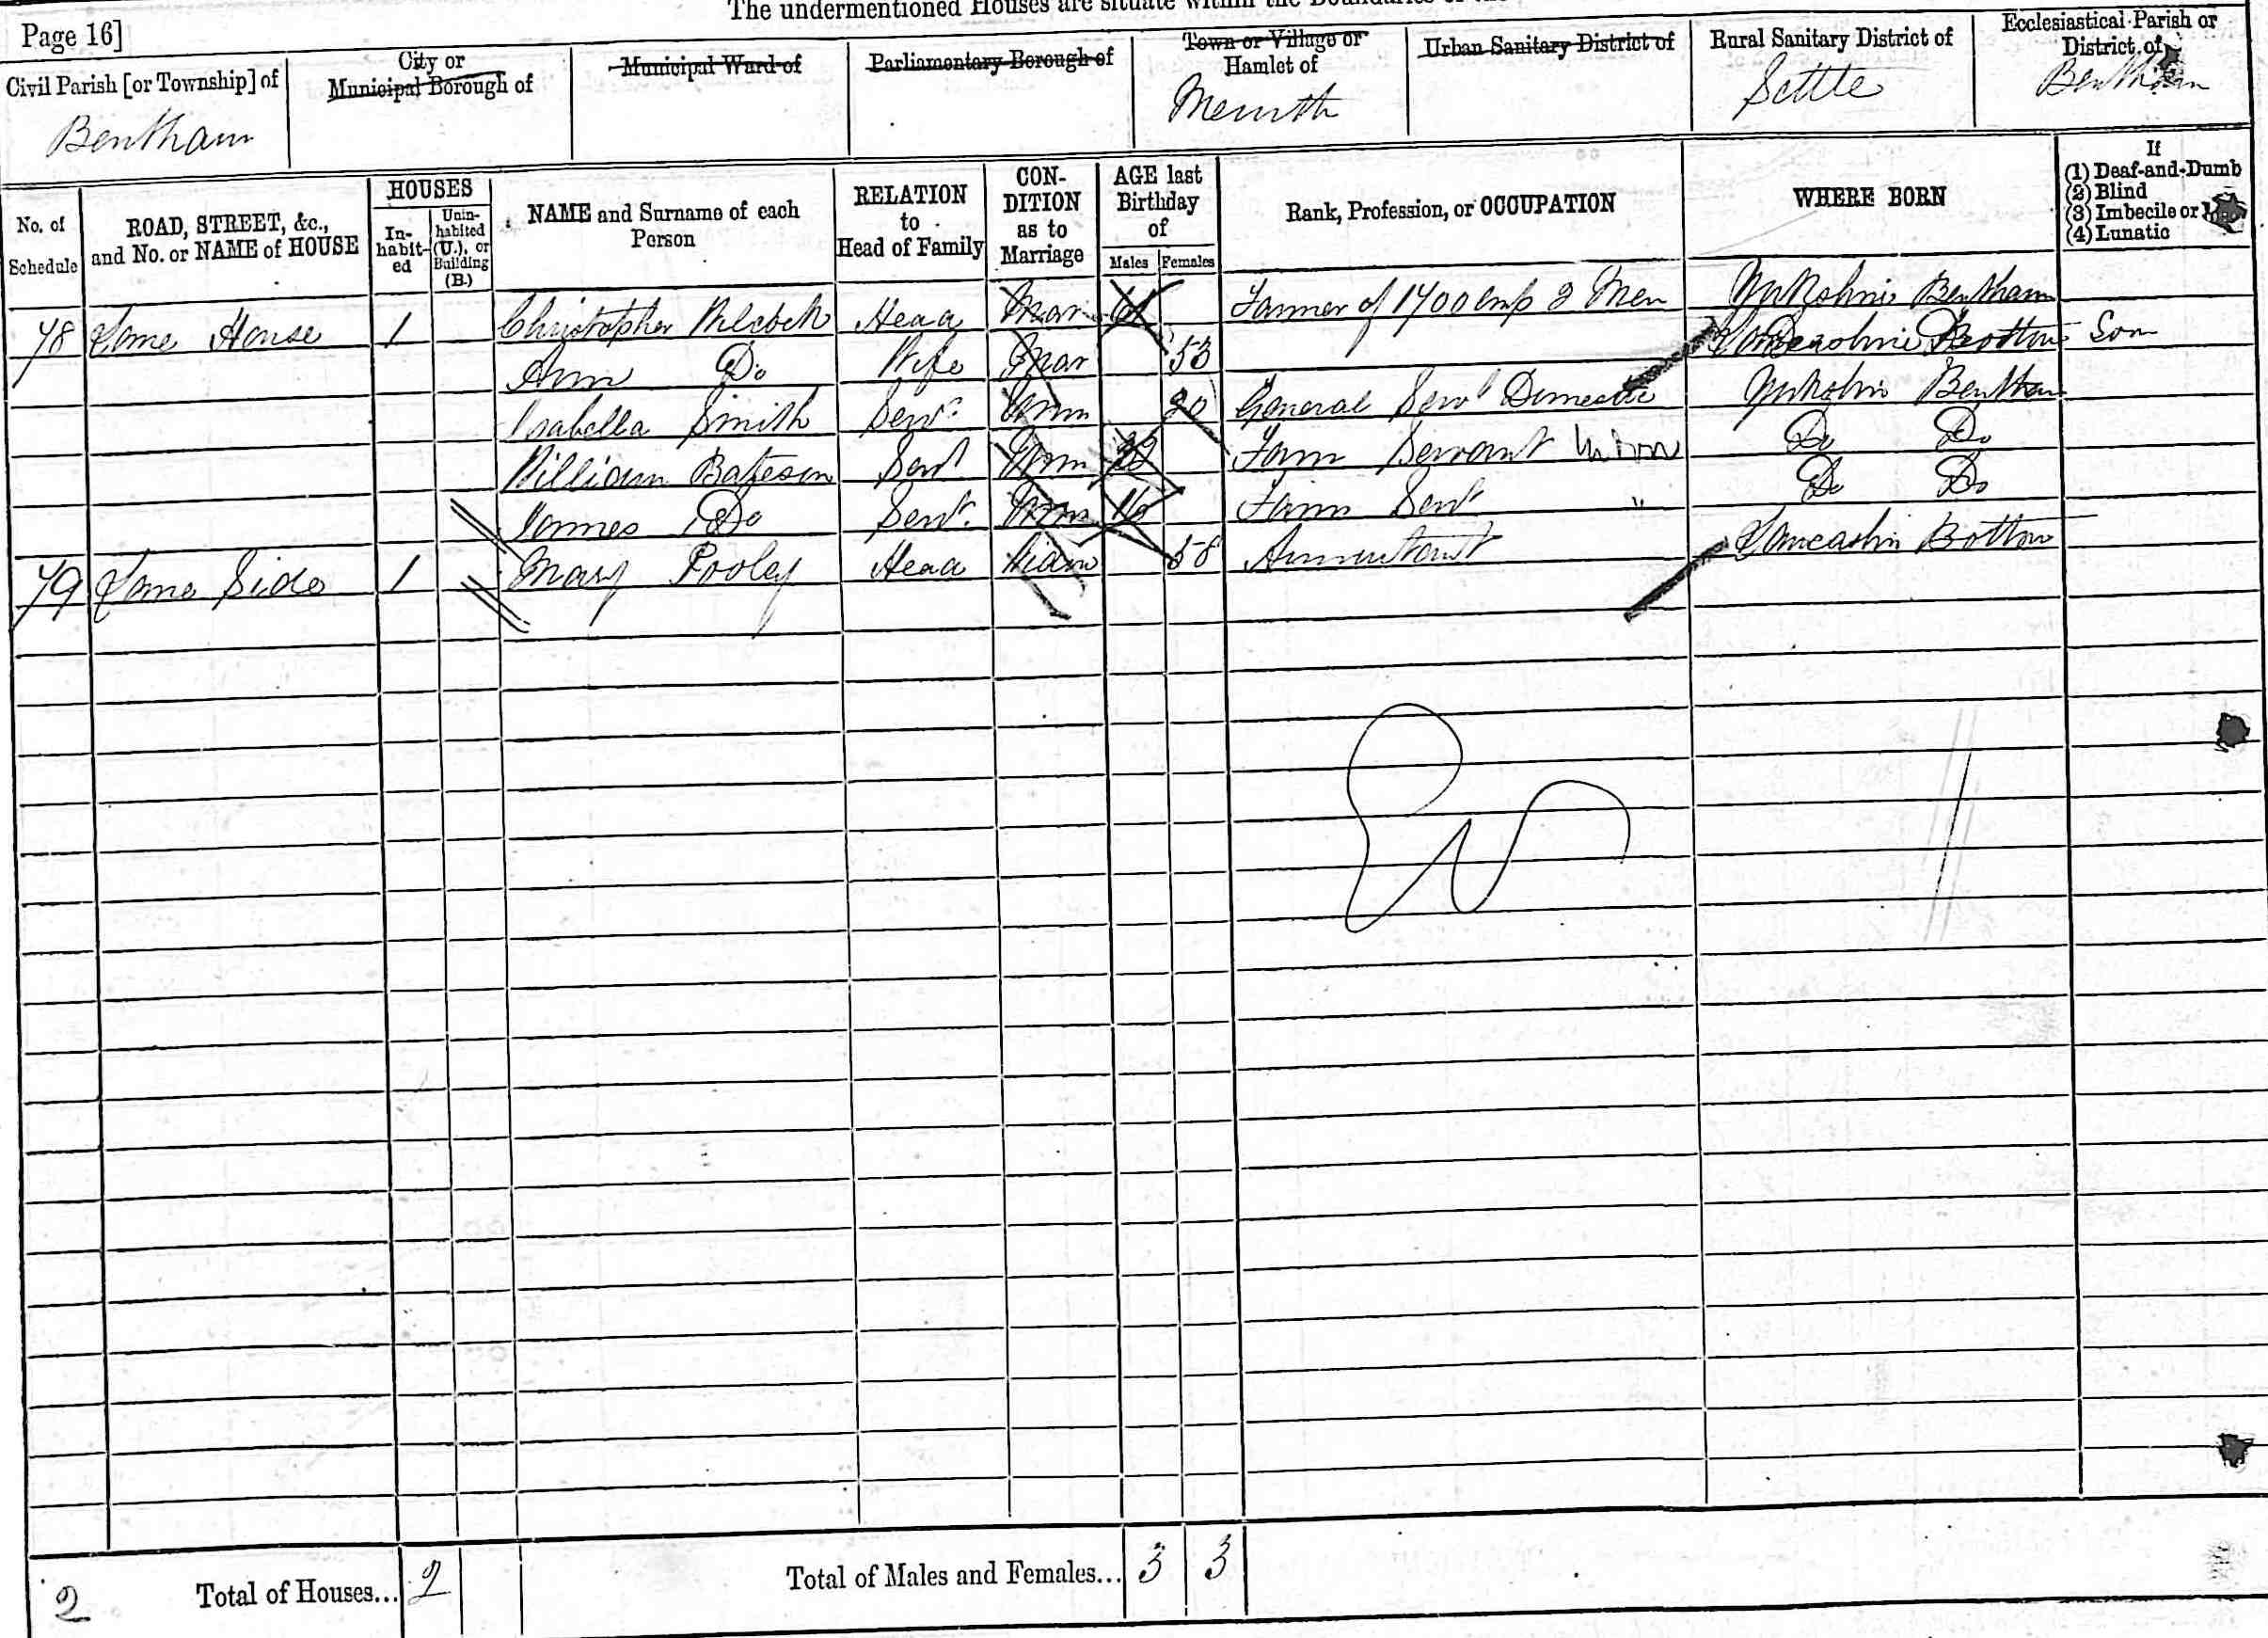 The undermentioned Houses are situate within the Boundaries of the
Page 16]
Civil Parish [or Township] of
Bentham
City or
Municipal Borough of
Municipal Ward of
Parliamentary Borough of
Town or Village or
Hamlet of
Urban Sanitary District of
Rural Sanitary District of
Settle
Ecclesiastical Parish or
District of
Bentham
No. of
Schedule
ROAD, STREET, &c.,
and No. or NAME of HOUSE
HOUSES
In-
habit-
ed
Unin-
habited
(U.), or
Building
(B.)
NAME and Surname of each
Person
RELATION
to
Head of Family
CON-
DITION
as to
Marriage
AGE last
Birthday
of
Males Females
Rank, Profession, or OCCUPATION
WHERE BORN
If
(1) Deaf-and-Dumb
(2) Blind
(3) Imbecile or
(4) Lunatic
78 Lane House 1 Christopher Head Mar Farmer of 1700 2 Men Bentham
Ann Do Wife Mar 53
Isabella Smith Servt Unm 20 General Servt Domestic Bentham
William Bateson Servt Unm Farm Servant Indoor Do Do
James Do Servt Unm 16 Farm Servt " Do Do
79 Lane Side 1 Mary Pooley Head Widow 58 Annuitant Lancashire Botton
2 Total of Houses... 2 Total of Males and Females... 3 3